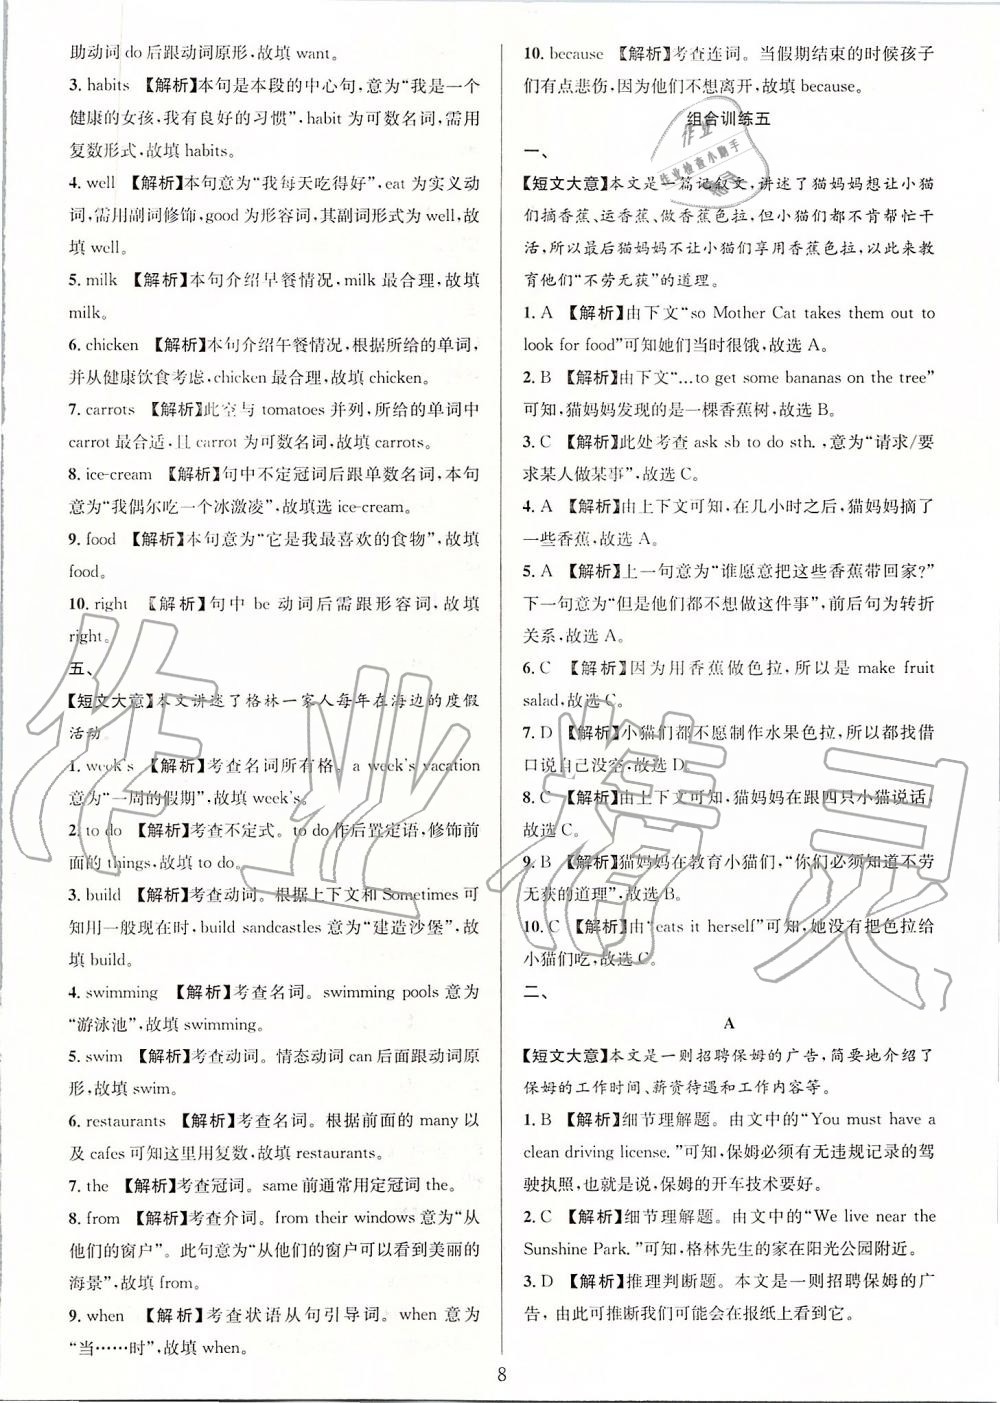 助动词 do 后跟动词原形,故填 want。
3. habits 【解析】本句是本段的中心句,意为“我是一个
健康的女孩,我有良好的习惯”,habit 为可数名词,需用
复数形式,故填 habits。
4. well 【解析】本句意为“我每天吃得好”,eat 为实义动
词,需用副词修饰,good 为形容词,其副词形式为 well,故
填 well。
5. milk 【解析】本句介绍早餐情况,milk 最合理,故填
milk。
6. chicken 【解析】本句介绍午餐情况,根据所给的单词,
并从健康饮食考虑,chicken 最合理,故填 chicken。
7. carrots 【解析】此空与 tomatoes 并列,所给的单词中
carrot 最合适,且 carrot 为可数名词,故填 carrots。
8. ice-cream 【解析】句中不定冠词后跟单数名词,本句
意为“我偶尔吃一个冰激凌”,故填选 ice-cream。
9. food 【解析】本句意为“它是我最喜欢的食物”,故填
food。
10. right 【解析】句中 be 动词后需跟形容词,故填
right。
五、
【短文大意】本文讲述了格林一家人每年在海边的度假
活动。
1. week's 【解析】考查名词所有格。a week's vacation
意为“一周的假期”,故填 week's。
2. to do 【解析】考查不定式。to do 作后置定语,修饰前
面的 things,故填 to do。
3. build 【解析】考查动词。根据上下文和 Sometimes 可
知用一般现在时,build sandcastles 意为“建造沙堡”,故
填 build。
4. swimming 【解析】考查名词。swimming pools 意为
“游泳池”,故填 swimming。
5. swim 【解析】考查动词。情态动词 can 后面跟动词原
形,故填 swim。
6. restaurants 【解析】考查名词。根据前面的 many 以
及 cafes 可知这里用复数,故填 restaurants。
7. the 【解析】考查冠词。same 前通常用定冠词 the。
8. from 【解析】考查介词。from their windows 意为“从
他们的窗户”。此句意为“从他们的窗户可以看到美丽的
海景”,故填 from。
9. when 【解析】考查状语从句引导词。when 意为
“当……时”,故填 when。
10. because 【解析】考查连词。当假期结束的时候孩子
们有点悲伤,因为他们不想离开,故填 because。
组合训练五
一、
【短文大意】本文是一篇记叙文,讲述了猫妈妈想让小猫
们摘香蕉、运香蕉、做香蕉色拉,但小猫们都不肯帮忙干
活,所以最后猫妈妈不让小猫们享用香蕉色拉,以此来教
育他们“不劳无获”的道理。
1. A 【解析】由下文“so Mother Cat takes them out to
look for food”可知她们当时很饿,故选 A。
2. B 【解析】由下文“...to get some bananas on the tree”
可知,猫妈妈发现的是一棵香蕉树,故选 B。
3. C 【解析】此处考查 ask sb to do sth. ,意为“请求/要
求某人做某事”,故选 C。
4. A 【解析】由上下文可知,在几小时之后,猫妈妈摘了
一些香蕉,故选 A。
5. A 【解析】上一句意为“谁愿意把这些香蕉带回家?”
下一句意为“但是他们都不想做这件事”,前后句为转折
关系,故选 A。
6. C 【解析】因为用香蕉做色拉,所以是 make fruit
salad,故选 C。
7. D 【解析】小猫们都不愿制作水果色拉,所以都找借
口说自己没空,故选 D。
8. C 【解析】由上下文可知,猫妈妈在跟四只小猫说话,
故选 C。
9. B 【解析】猫妈妈在教育小猫们,“你们必须知道不劳
无获的道理”,故选 B。
10. C 【解析】由“eats it herself”可知,她没有把色拉给
小猫们吃,故选 C。
二、
A
【短文大意】本文是一则招聘保姆的广告,简要地介绍了
保姆的工作时间、薪资待遇和工作内容等。
1. B 【解析】细节理解题。由文中的“You must have a
clean driving license.”可知,保姆必须有无违规记录的驾
驶执照,也就是说,保姆的开车技术要好。
2. C 【解析】细节理解题。由文中的“We live near the
Sunshine Park.”可知,格林先生的家在阳光公园附近。
3. D 【解析】推理判断题。本文是一则招聘保姆的广
告,由此可推断我们可能会在报纸上看到它。
8
作业精灵
作业
作业检查小助手